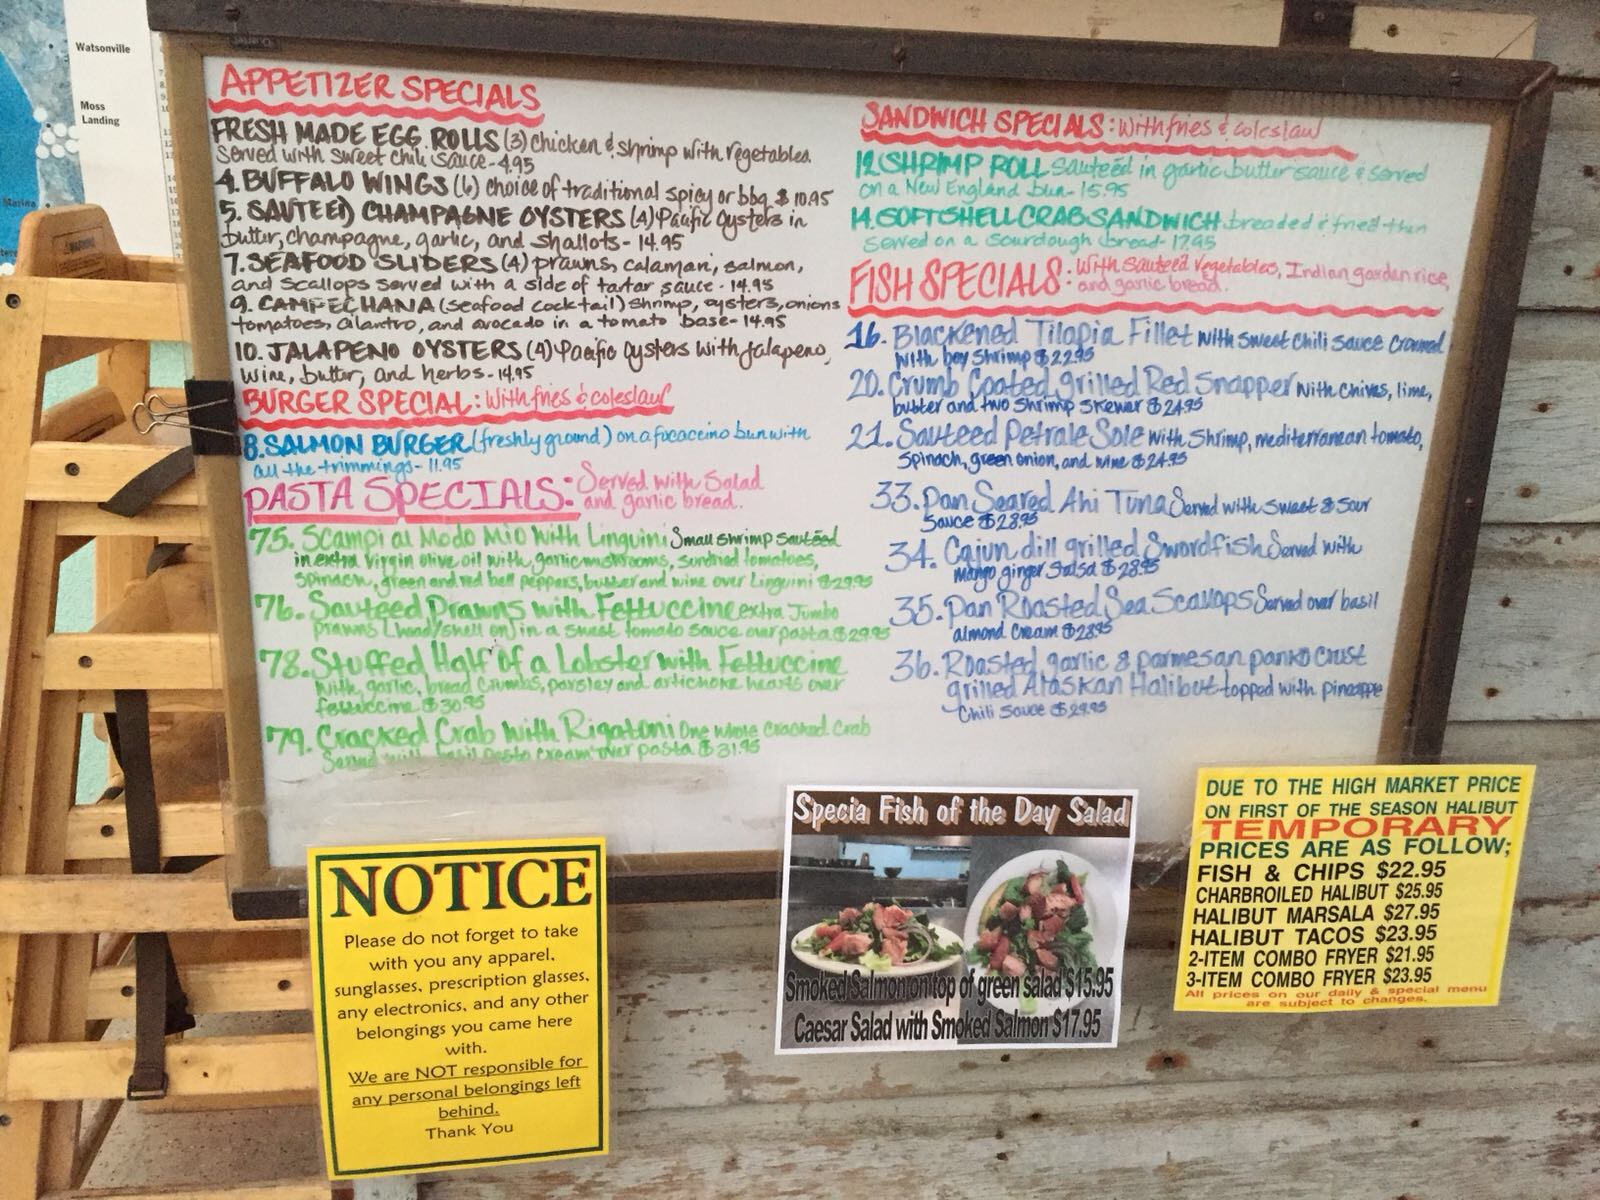 Watsonville
Moss
Landing
Marina
APPETIZER SPECIALS
FRESH MADE EGG ROLLS (3) chicken & shrimp with vegetables.
Served with sweet chili sauce - 4.95
4. BUFFALO WINGS (6) choice of traditional spicy or bbq $10.95
5. SAUTEED CHAMPAGNE OYSTERS (4) Pacific Oysters in
butter, champagne, garlic, and shallots - 14.95
7. SEAFOOD SLIDERS (4) prawns, calamari, salmon,
and scallops served with a side of tartar sauce - 14.95
9. CAMPECHANA (seafood cocktail) shrimp, oysters, onions
tomatoes, cilantro, and avocado in a tomato base - 14.95
10. JALAPENO OYSTERS (4) Pacific Oysters with Jalapeno,
wine, butter, and herbs - 14.95
BURGER SPECIAL: With fries & coleslaw
8. SALMON BURGER (freshly ground) on a focaccino bun with
all the trimmings - 11.95
PASTA SPECIALS: Served with Salad
and garlic bread.
75. Scampi al Modo Mio with Linguini Small shrimp sautéed
in extra virgin olive oil with, garlic mushrooms, sundried tomatoes,
spinach, green and red bell peppers, butter and wine over Linguini $29.95
76. Sauteed Prawns with Fettuccine extra Jumbo
prawns (head/shell on) in a sweet tomato sauce over pasta $29.95
78. Stuffed Half of a Lobster with Fettuccine
with, garlic, bread crumbs, parsley and artichoke hearts over
fettuccine $30.95
79. Cracked Crab with Rigatoni One whole cracked Crab
Served with basil pesto cream over pasta $31.95
SANDWICH SPECIALS: With fries & coleslaw
12. SHRIMP ROLL Sauteéd in garlic butter sauce & served
on a New England bun - 15.95
14. SOFTSHELL CRAB SANDWICH breaded & fried then
served on a sourdough bread - 17.95
FISH SPECIALS: With sauteéd vegetables, Indian garden rice,
and garlic bread.
16. Blackened Tilapia Fillet with sweet chili sauce crowned
with bay shrimp $22.95
20. Crumb Coated grilled Red Snapper with chives, lime,
butter and two shrimp skewer $24.95
21. Sauteed Petrale Sole with Shrimp, mediterranean tomato,
spinach, green onion, and wine $24.95
33. Pan Seared Ahi Tuna Served with sweet & sour
sauce $28.95
34. Cajun dill grilled Swordfish Served with
mango ginger salsa $28.95
35. Pan Roasted Sea Scallops Served over basil
almond cream $28.95
36. Roasted garlic & parmesan panko crust
grilled Alaskan Halibut topped with pineapple
chili sauce $29.95
NOTICE
Please do not forget to take
with you any apparel,
sunglasses, prescription glasses,
any electronics, and any other
belongings you came here
with.
We are NOT responsible for
any personal belongings left
behind.
Thank You
Specia Fish of the Day Salad
Smoked Salmon on top of green salad $15.95
Caesar Salad with Smoked Salmon $17.95
DUE TO THE HIGH MARKET PRICE
ON FIRST OF THE SEASON HALIBUT
TEMPORARY
PRICES ARE AS FOLLOW;
FISH & CHIPS $22.95
CHARBROILED HALIBUT $25.95
HALIBUT MARSALA $27.95
HALIBUT TACOS $23.95
2-ITEM COMBO FRYER $21.95
3-ITEM COMBO FRYER $23.95
All prices on our daily & special menu
are subject to changes.